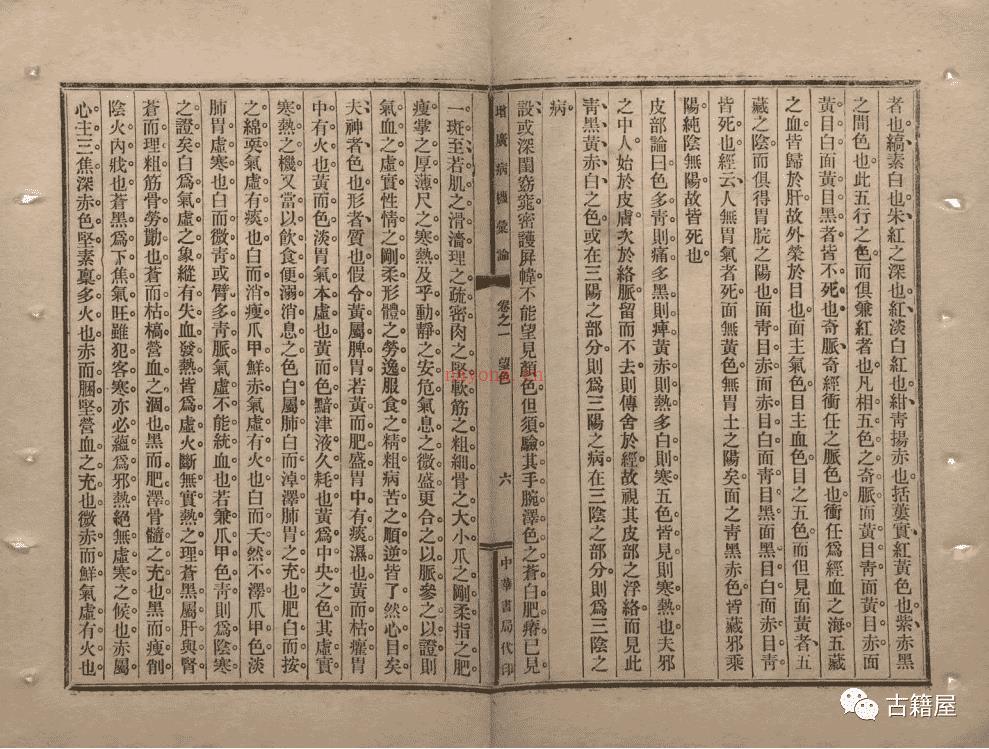 者也縞素白也朱紅之深也紅淡白紅也紺青揚赤也括蔞實紅黃色也紫赤黑
之間色也此五行之色而俱兼紅者也凡相五色之奇脈面黃目青面黃目赤面
黃目白面黃目黑者皆不死也奇脈奇經衝任之脈色也衝任為經血之海五藏
之血皆歸於肝故外榮於目也面主氣色目主血色目之五色而但見面黃者五
藏之陰而俱得胃脘之陽也面青目赤面赤目白面青目黑面黑目白面赤目青
皆死也經云人無胃氣者死面無黃色無胃土之陽矣面之青黑赤色皆藏邪乘
陽純陰無陽故皆死也
皮部論曰色多青則痛多黑則痺黃赤則熱多白則寒五色皆見則寒熱也夫邪
之中人始於皮膚次於絡脈留而不去則傳舍於經故視其皮部之浮絡而見此
青黑黃赤白之色或在三陽之部分則為三陽之病在三陰之部分則為三陰之
病
設或深閨窈窕密護屏幃不能望見顏色但須驗其手腕澤色之蒼白肥瘠已見
增廣病機彙論
卷之一 望色
六
中華書局代印
一斑至若肌之滑濇理之疏密肉之堅軟筋之粗細骨之大小爪之剛柔指之肥
瘦掌之厚薄尺之寒熱及乎動靜之安危氣息之微盛更合之以脈參之以證則
氣血之虛實性情之剛柔形體之勞逸服食之精粗病苦之順逆皆了然心目矣
夫神者色也形者質也假令黃屬脾胃若黃而肥盛胃中有痰濕也黃而枯癯胃
中有火也黃而色淡胃氣本虛也黃而色黯津液久耗也黃為中央之色其虛實
寒熱之機又當以飲食便溺消息之色白屬肺白而淖澤肺胃之充也肥白而按
之綿耎氣虛有痰也白而消瘦爪甲鮮赤氣虛有火也白而夭然不澤爪甲色淡
肺胃虛寒也白而微青或臂多青脈氣虛不能統血也若兼爪甲色青則為陰寒
之證矣白為氣虛之象縱有失血發熱皆為虛火斷無實熱之理蒼黑屬肝與腎
蒼而理粗筋骨勞勩也蒼而枯槁營血之涸也黑而肥澤骨髓之充也黑而瘦削
陰火內戕也蒼黑為下焦氣旺雖犯客寒亦必蘊為邪熱絕無虛寒之候也赤屬
心主三焦深赤色堅素稟多火也赤而膕堅營血之充也微赤而鮮氣虛有火也
古籍屋